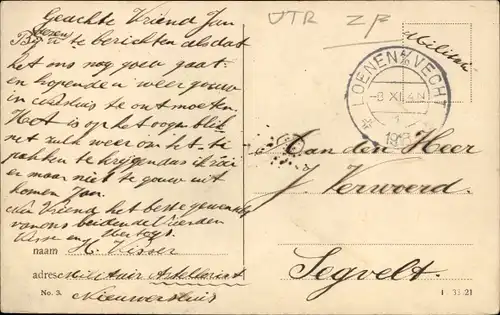 Geachte Vriend Jan
Bij dezen
u te berichten als dat
het ons nog goed gaat
en hopende u weer gauw
in te ont moeten
Het is op het oogen blik
net zulk weer om het te
pakken te krijgen dus ik zei
er maar niet te gauw uit
komen Jan.
Nu Vriend het beste gewenscht
van ons beiden de Vrienden
Visser en
naam H. Visser
adres Militair Artellerist
Nieuwersluis
No. 3.
UTR ZF
Militair
LOENEN A/D VECHT
XI 4N
191
Aan den Heer
J. Verwoerd.
Segvelt.
1 33.21